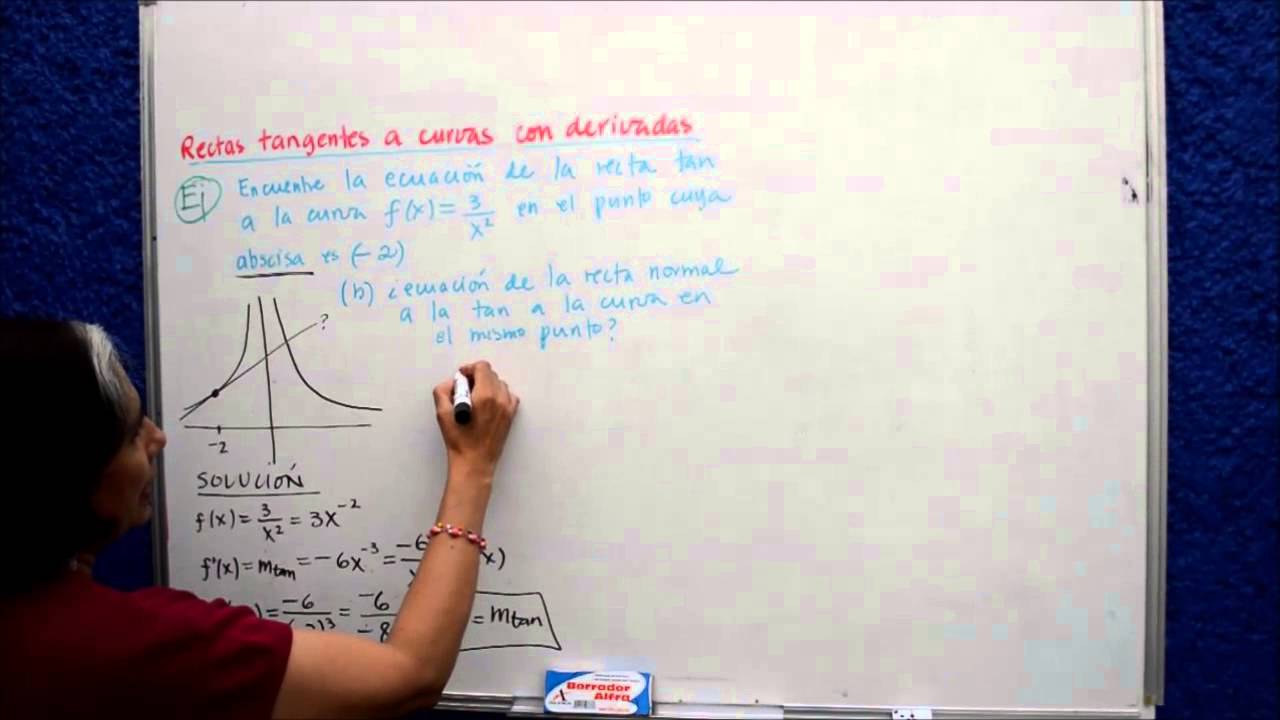 Rectas tangentes a curvas con derivadas
Ej Encuentre la ecuación de la recta tan
a la curva f(x) = 3/x² en el punto cuya
abscisa es (-2)
(b) ¿ecuación de la recta normal
a la tan a la curva en
el mismo punto?
?
-2
SOLUCIÓN
f(x) = 3/x² = 3x⁻²
f'(x) = mtan = -6x⁻³ = -6 x)
) = -6/( )³ = -6/-8 = mtan
Borrador
Alfra